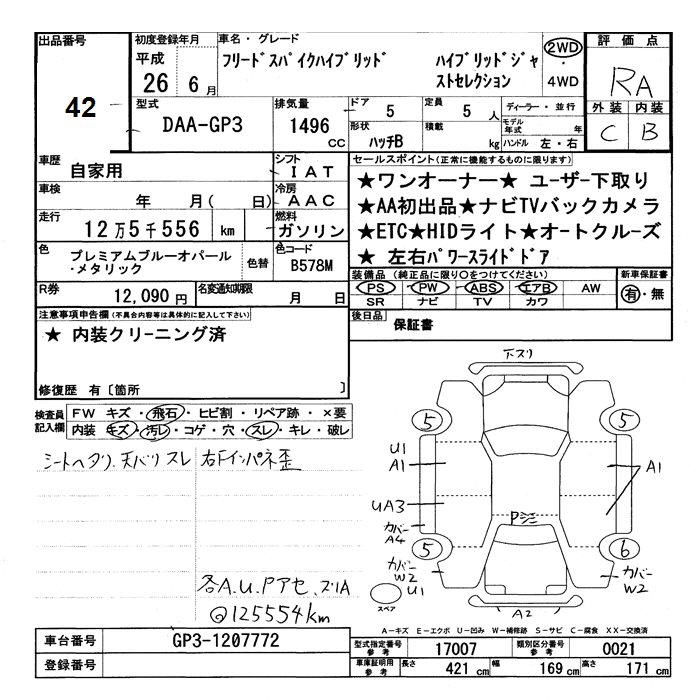 出品番号
42
初度登録年月
平成
26 6月
車名・グレード
フリードスパイクハイブリッド ハイブリッドジャストセレクション
2WD
・
4WD
評価点
RA
外装 内装
C B
型式
DAA-GP3
排気量
1496 CC
ドア
5
定員
5 人
形状
ハッチB
積載
kg
ディーラー・並行
モデル年式 年
ハンドル 左・右
車歴
自家用
シフト
IAT
車検
年 月( 日)
冷房
AAC
走行
12万5千556 km
燃料
ガソリン
色
プレミアムブルーオパール
・メタリック
色替
色コード
B578M
R券
12,090円
名変通知期限
月 日
セールスポイント(正常に機能するものに限ります)
★ワンオーナー★ ユーザー下取り
★AA初出品★ナビTVバックカメラ
★ETC★HIDライト★オートクルーズ
★ 左右パワースライドドア
装備品 (純正品に限り○をつけてください)
PS PW ABS エアB AW
SR ナビ TV カワ
新車保証書
有・無
後日品
保証書
注意事項申告欄(不具合内容等は具体的に記入して下さい)
★ 内装クリーニング済
修復歴 有〔箇所 〕
検査員記入欄
FW キズ・飛石・ヒビ割・リペア跡・×要
内装 キズ・汚レ・コゲ・穴・スレ・キレ・破レ
シートヘタリ、天バリスレ 右Fインパネ歪
各A.U.Pアセ、スリA
@125554km
下スリ
5 5
U1
A1
A1
UA3
Pシミ
カバー
A4
5 6
カバー
W2
U1
カバー
W2
スペア
A2
A-キズ E-エクボ U-凹み W-補修跡 S-サビ C-腐食 XX-交換済
車台番号
GP3-1207772
登録番号
型式指定番号
参考
17007
類別区分番号
参考
0021
車庫証明用
参考
長さ
421 cm
幅
169 cm
高さ
171 cm